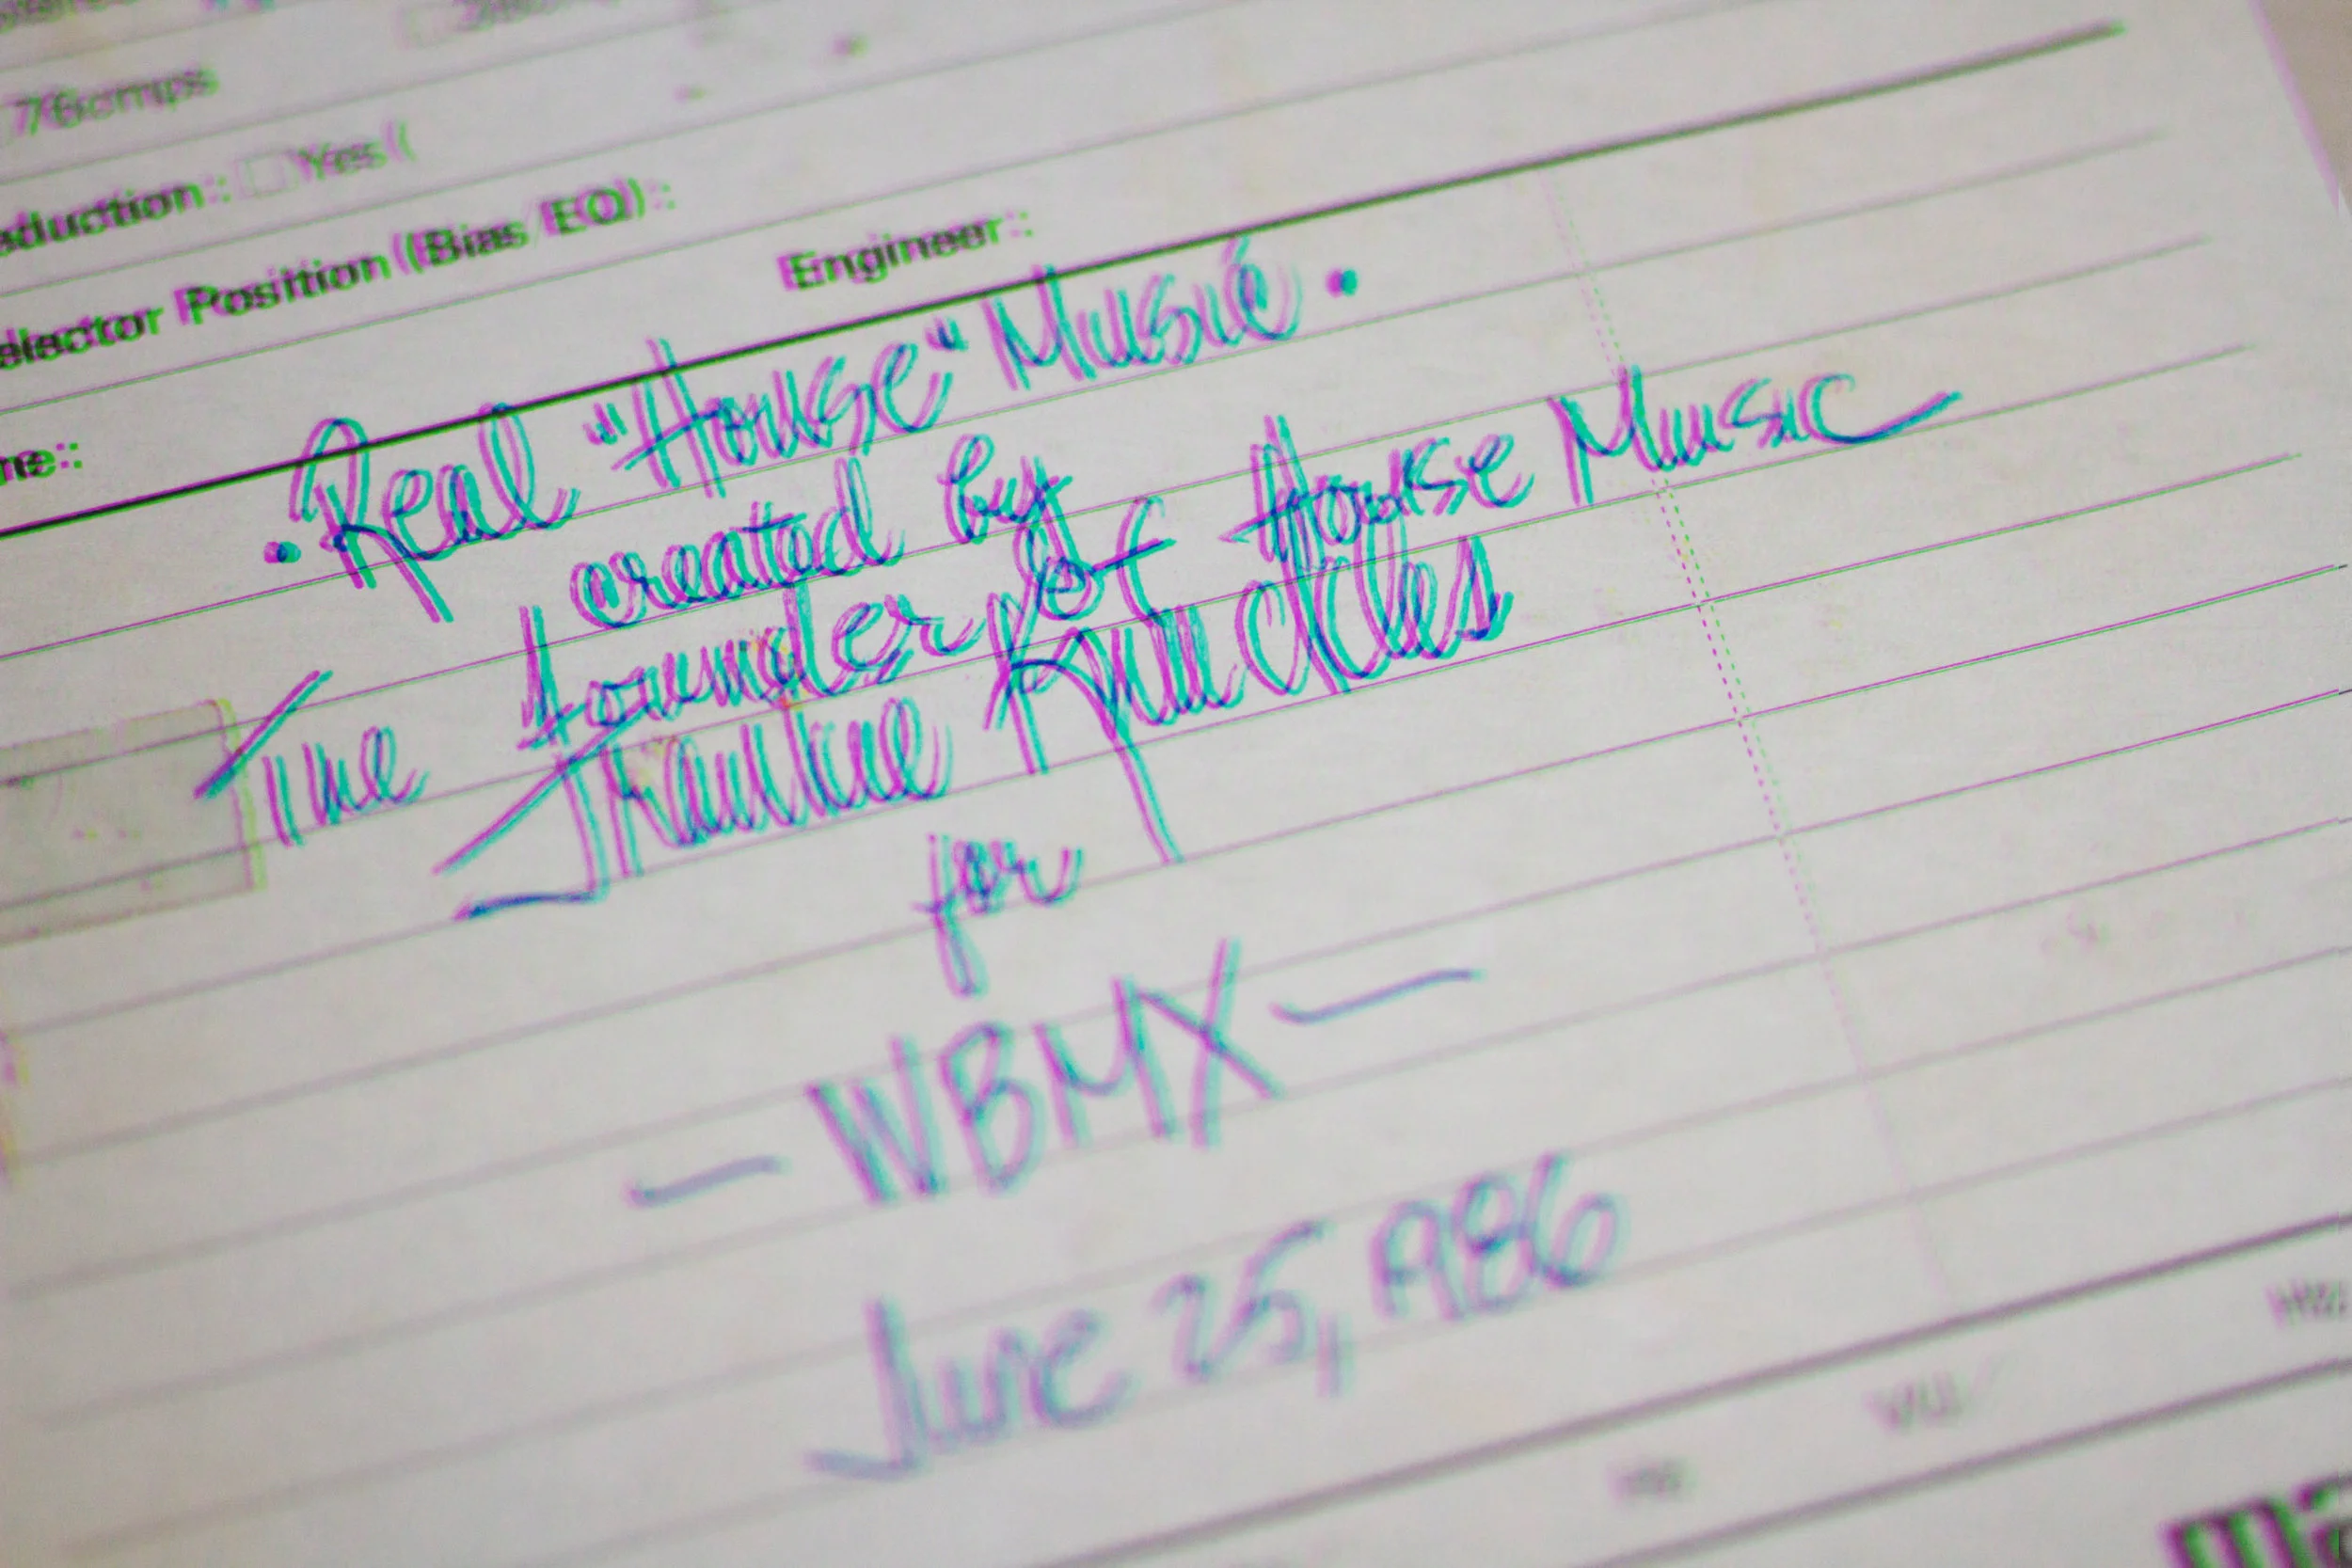 76cmps
oduction: □ Yes
elector Position (Bias/EQ):
Engineer:
me:
• Real "House" Music •
created by
The founder of House Music
Frankie Knuckles
for
— WBMX —
June 25, 1986
VU
ma